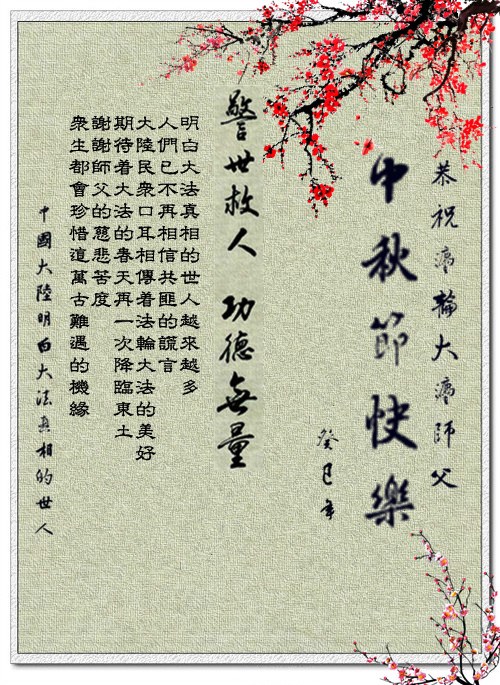 恭祝灋輪大灋師父
中秋節快樂
癸巳年
警世救人 功德無量
明白大法真相的世人越來越多
人們已不再相信共匪的謊言
大陸民衆口耳相傳着法輪大法的美好
期待着大法的春天再一次降臨東土
謝謝師父的慈悲苦度
衆生都會珍惜這萬古難遇的機緣
中國大陸明白大法真相的世人